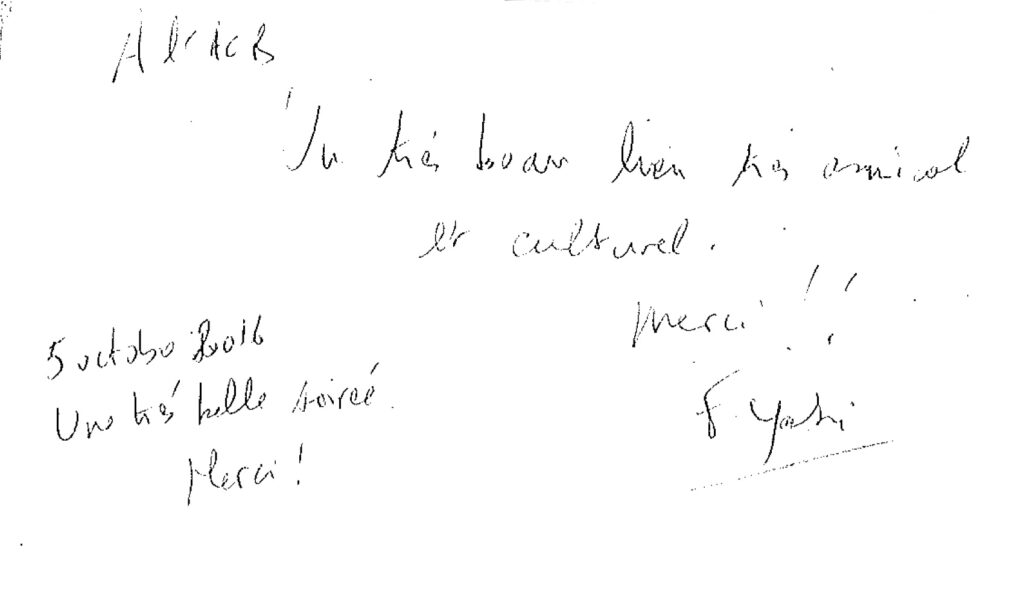 A l'ACB
Un très beau lien très amical
et culturel.
Merci !!
5 octobre 2016
Une très belle soirée.
Merci !
F. Yahi